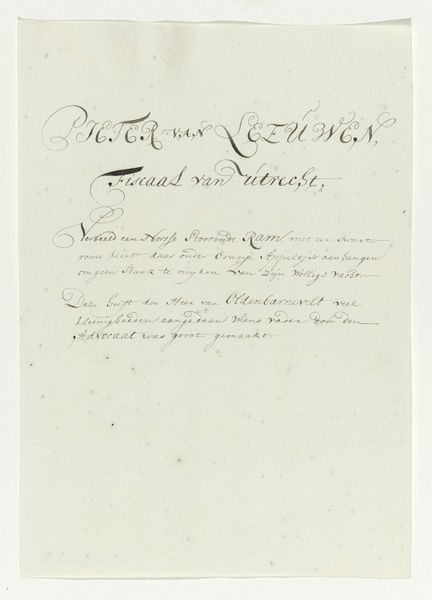 PIETER VAN LEEUWEN,
Fiscaal van Utrecht,
Verbeeld een Noorse Stootende Ram, met een swart
rons kleet daar onder Oranje Appeltjes aan hangen
om geen Stank te ruyken van zijn Wollige vacht
Deze heeft den Heer van Oldenbarnevelt veel
kleinigheeden aangedaan wiens vader door den
Advocaat was groot gemaakt